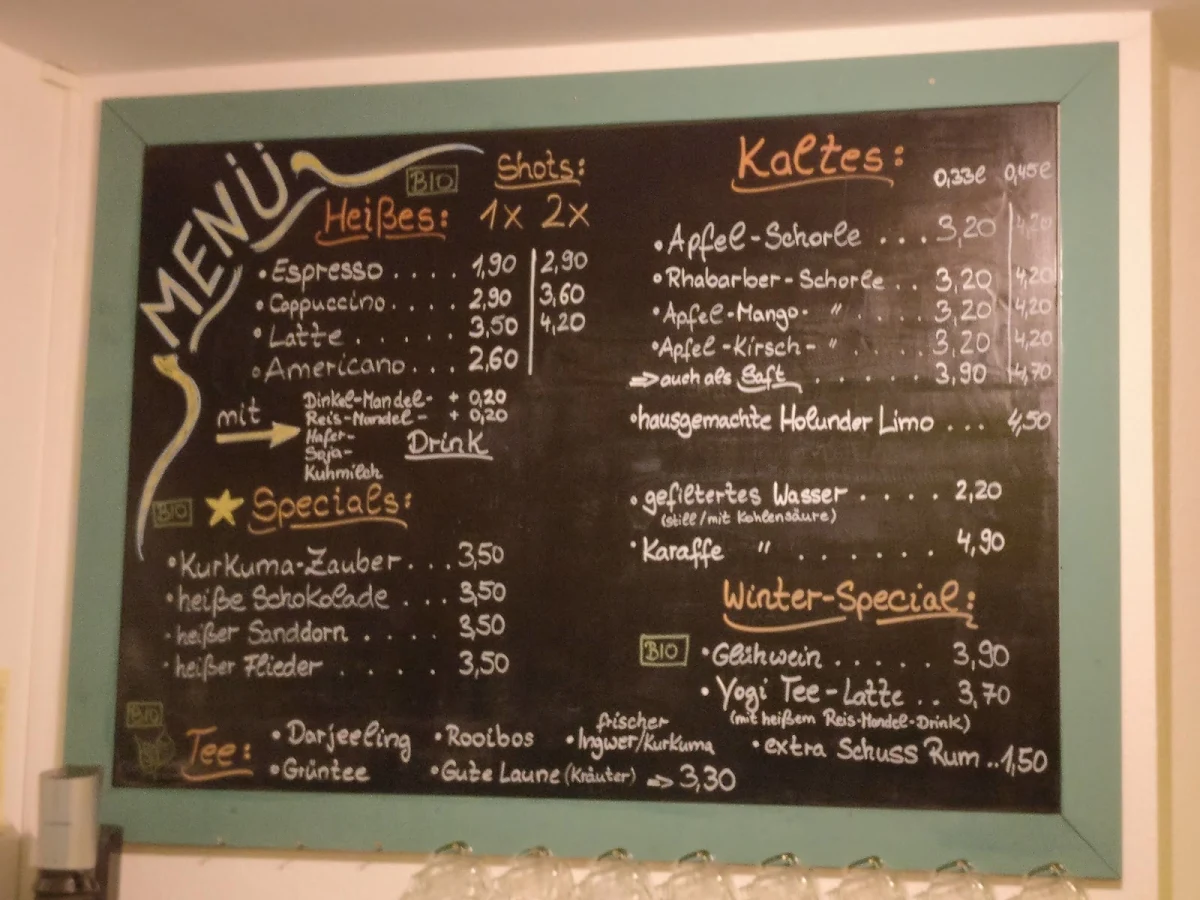 MENÜ
BIO
Shots:
Heißes: 1x 2x
• Espresso .... 1,90 | 2,90
• Cappuccino .... 2,90 | 3,60
• Latte ...... 3,50 | 4,20
• Americano .... 2,60
mit
Dinkel-Mandel- + 0,20
Reis-Mandel- + 0,20
Hafer-
Soja-
Kuhmilch
Drink
BIO
Specials:
• Kurkuma-Zauber ... 3,50
• heiße Schokolade ... 3,50
• heißer Sanddorn .... 3,50
• heißer Flieder ..... 3,50
Kaltes: 0,33l 0,45l
• Apfel-Schorle ... 3,20 | 4,20
• Rhabarber-Schorle .. 3,20 | 4,20
• Apfel-Mango- " .... 3,20 | 4,20
• Apfel-Kirsch- " .... 3,20 | 4,20
⇒ auch als Saft ...... 3,90 | 4,70
• hausgemachte Holunder Limo ... 4,50
• gefiltertes Wasser .... 2,20
(still/mit Kohlensäure)
• Karaffe " ...... 4,90
Winter-Special:
BIO
• Glühwein ..... 3,90
• Yogi Tee-Latte .. 3,70
(mit heißem Reis-Mandel-Drink)
• extra Schuss Rum .. 1,50
BIO
Tee:
• Darjeeling • Rooibos • frischer Ingwer/Kurkuma
• Grüntee • Gute Laune (Kräuter) ⇒ 3,30